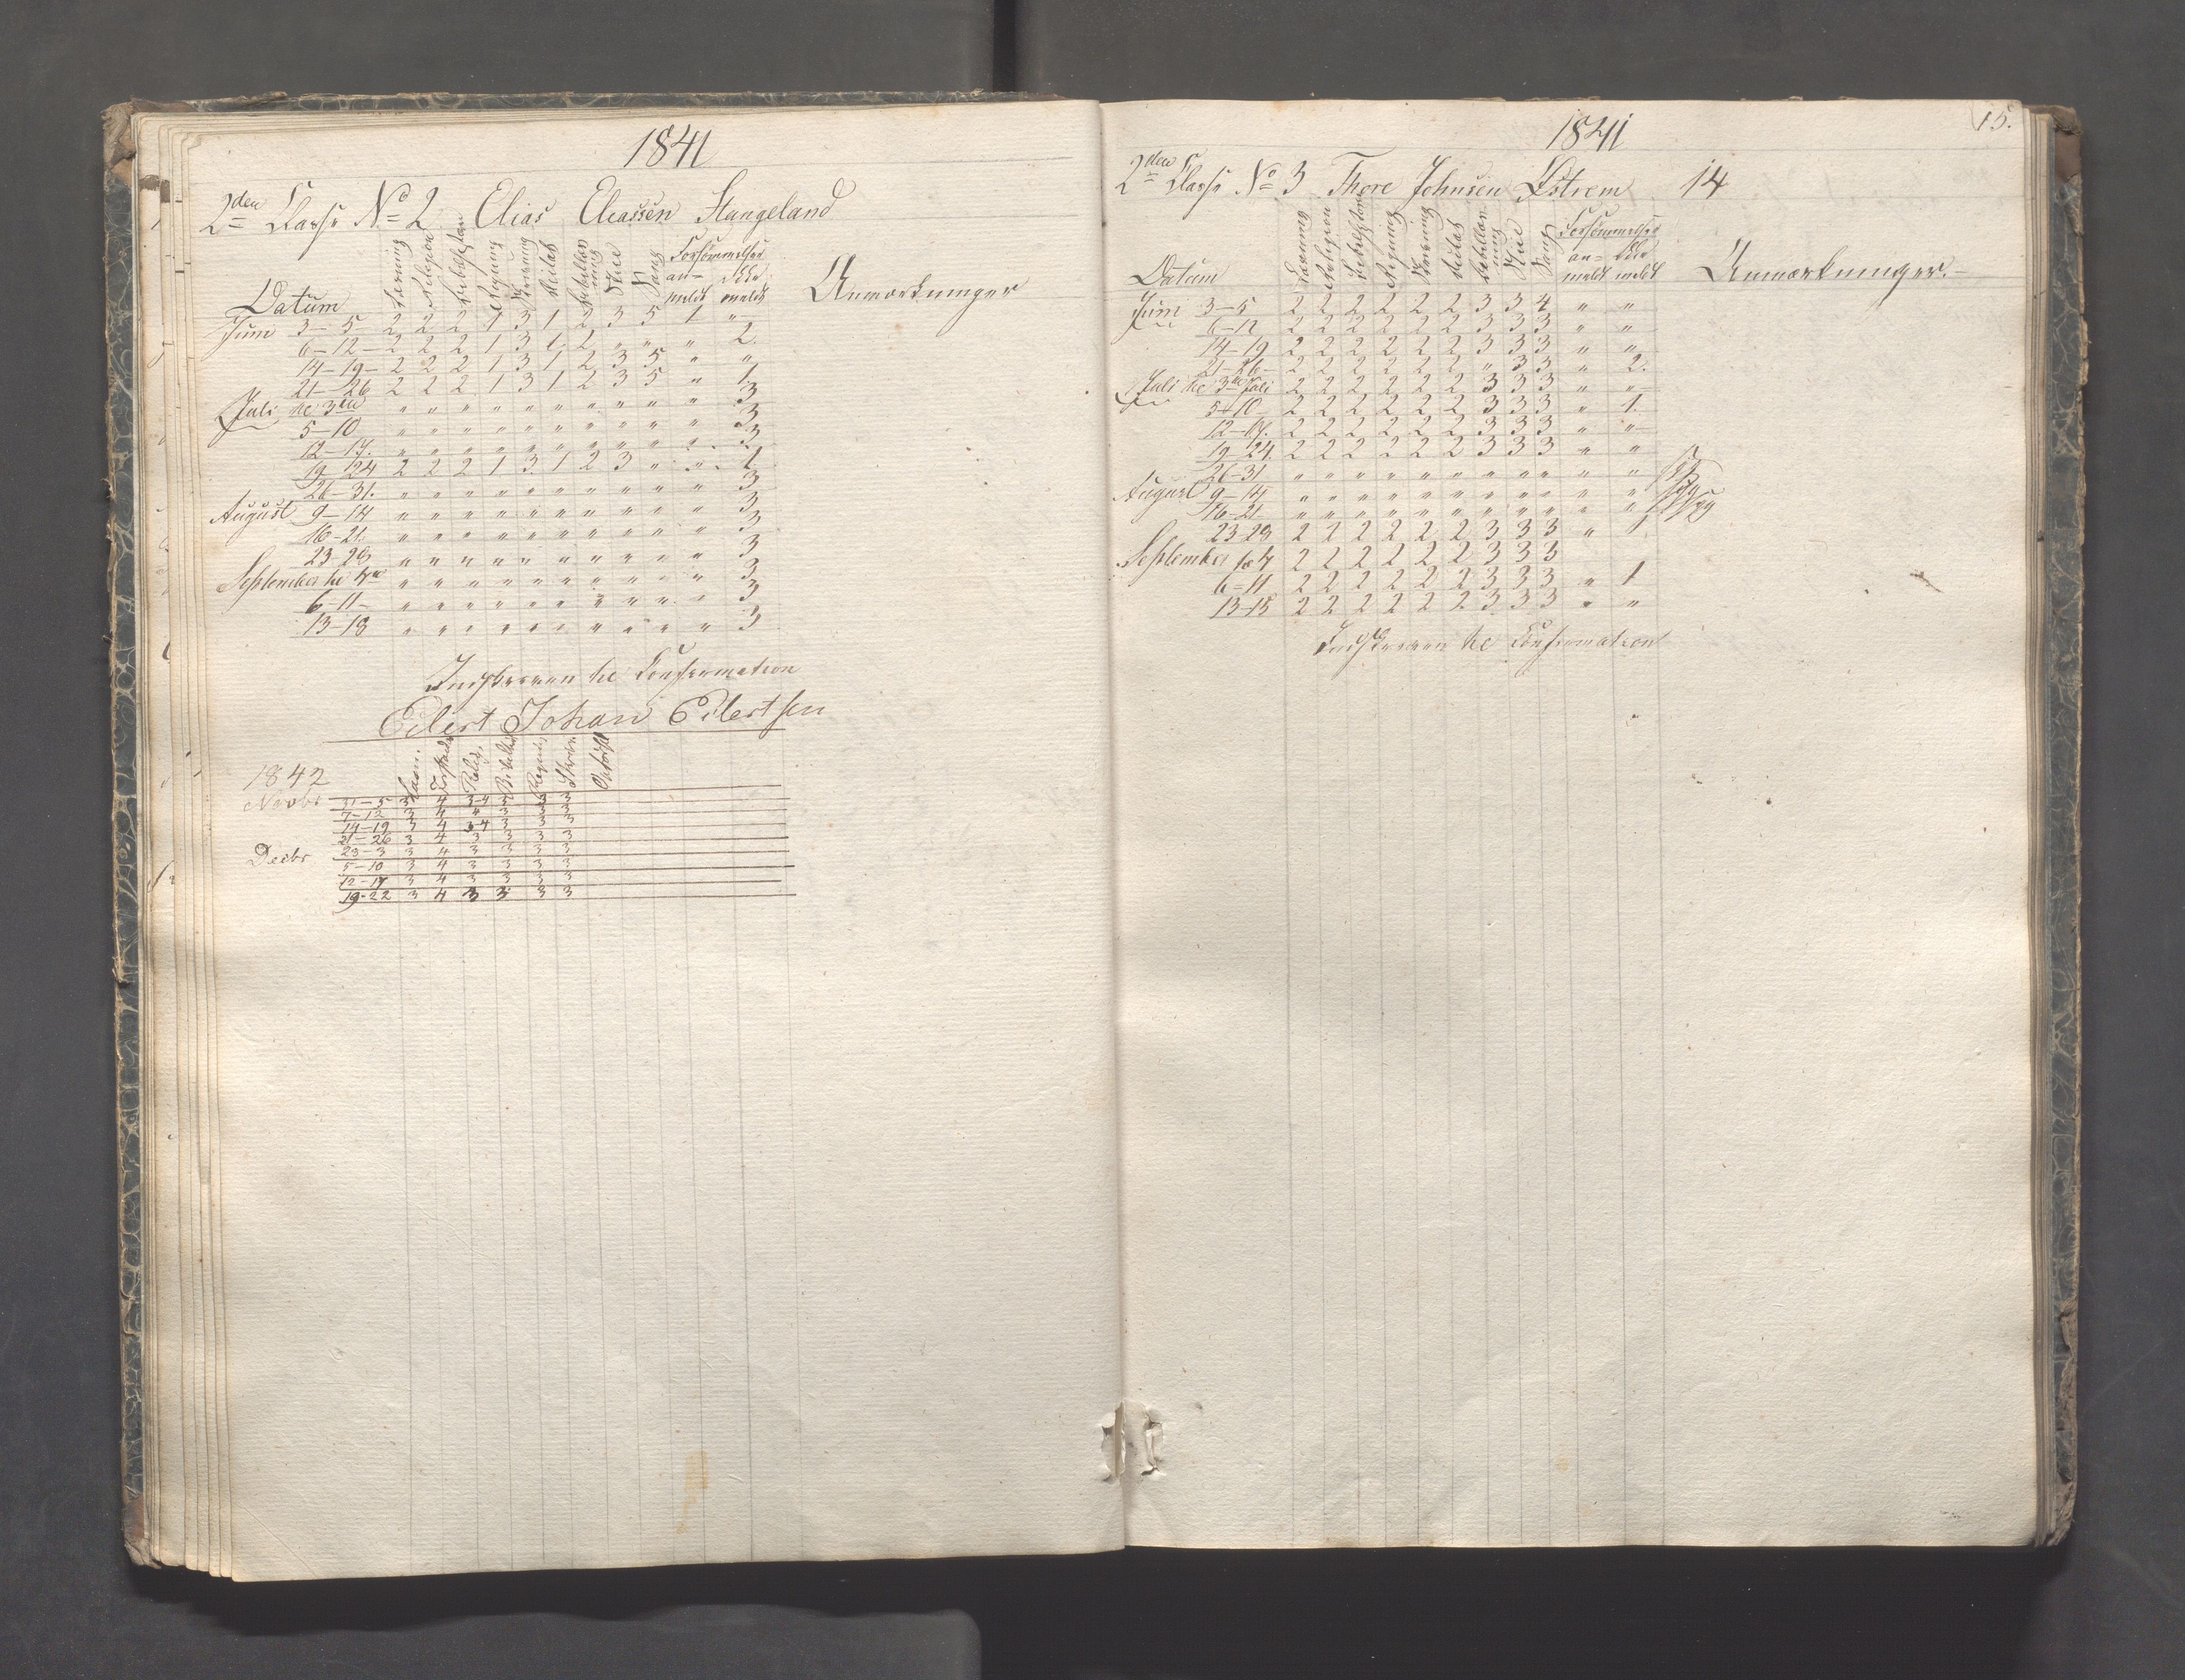 1841
2den Classe No 2 Elias Eliassen Stangeland
Datum Læsning Religion Bibelhistorie Regning Skrivning Flid Forsømmelser an- meldt Ikke meldt Anmærkninger
Juni 3-5 2 2 2 1 3 1 2 3 5 1 "
6-12- 2 2 2 1 3 1 2 " " " 2.
14-19- 2 2 2 1 3 1 2 3 5 " "
21-26 2 2 2 1 3 1 2 3 5 " 1
Juli til 3die " " " " " " " " " " 3
5-10 " " " " " " " " " " 3
12-17. " " " " " " " " " " 3
19-24 2 2 2 1 3 1 2 3 " " 1
26-31. " " " " " " " " " " 3
August 9-14 " " " " " " " " " " 3
16-21 " " " " " " " " " " 3
23-28 " " " " " " " " " " 3
September til 4de " " " " " " " " " " 3
6-11- " " " " " " " " " " 3
13-18 " " " " " " " " " " 3
Indskreven til Confirmation
Eilert Johan Eilertsen
1842 Læsn. Religi. Regn. Skriv.
Novbr 31-5 3 4 3-4 3 3 3
7-12 3 4 " 3 3 3
14-19 3 4 3-4 3 3 3
21-26 3 4 3 3 3 3
Decbr 23-3 3 4 3 3 3 3
5-10 3 4 3 3 3 3
12-17 3 4 3 3 3 3
19-22 3 4 3 3 3 3
15.
1841
2den Classe No 3 Thore Johnsen Østrem 14
Datum Læsning Religion Bibelhistorie Regning Skrivning Flid Sang Forsømmelser an- meldt Ikke meldt Anmærkninger.-
Juni 3-5 2 2 2 2 2 2 3 3 4 " "
6-12 2 2 2 2 2 2 3 3 3 " "
14-19 2 2 2 2 2 2 3 3 3 " "
21-26- 2 2 2 2 2 2 " 3 3 " 2.
Juli til 3die Juli 2 2 2 2 2 2 3 3 3 " "
5-10 2 2 2 2 2 2 3 3 3 " 1.
12-17. 2 2 2 2 2 2 3 3 3 " "
19-24. 2 2 2 2 2 2 3 3 3 " "
26-31 " " " " " " " " " " "
August 9-14 " " " " " " " " " " "
16-21 " " " " " " " " " " "
23-28 2 2 2 2 2 2 3 3 3 " 1
September til 4 2 2 2 2 2 2 3 3 3
6-11 2 2 2 2 2 2 3 3 3 " 1
13-18 2 2 2 2 2 2 3 3 3 " "
Indskreven til Confirmation